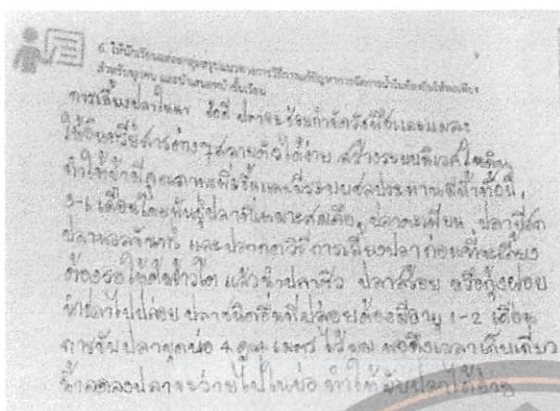 6. ให้นักเรียนแต่ละกลุ่มสรุปแนวทางการวิธีการแก้ปัญหาการจัดการน้ำในท้องถิ่นให้พอเพียง
สำหรับทุกคน และนำเสนอหน้าชั้นเรียน
การเลี้ยงปลาในนา ข้อดี ปลาจะช่วยกำจัดวัชพืชและแมลง
ให้อินทรีย์สารต่างๆสลายตัวได้ง่าย สร้างระบบนิเวศในดิน
ทำให้ข้าวมีคุณภาพเพิ่มขึ้นและมีระบบชลประทานมีน้ำ
3-6 เดือนโดยพันธุ์ปลาที่เหมาะสมคือ ปลาตะเพียน ปลายี่สก
และ วิธีการเลี้ยงปลา ก่อนที่จะเลี้ยง
ต้องรอให้ต้นข้าวโต แล้วนำปลาซิว ปลาสร้อย หรือกุ้งฝอย
ไปปล่อย ปลาชนิดอื่นที่ปล่อยต้องมีอายุ 1-2 เดือน
การจับปลาขุดบ่อ 4 เมตร ไว้ พอถึงเวลาเก็บเกี่ยว
น้ำลดลงปลาจะว่ายไปในบ่อ ทำให้จับปลาได้ง่าย